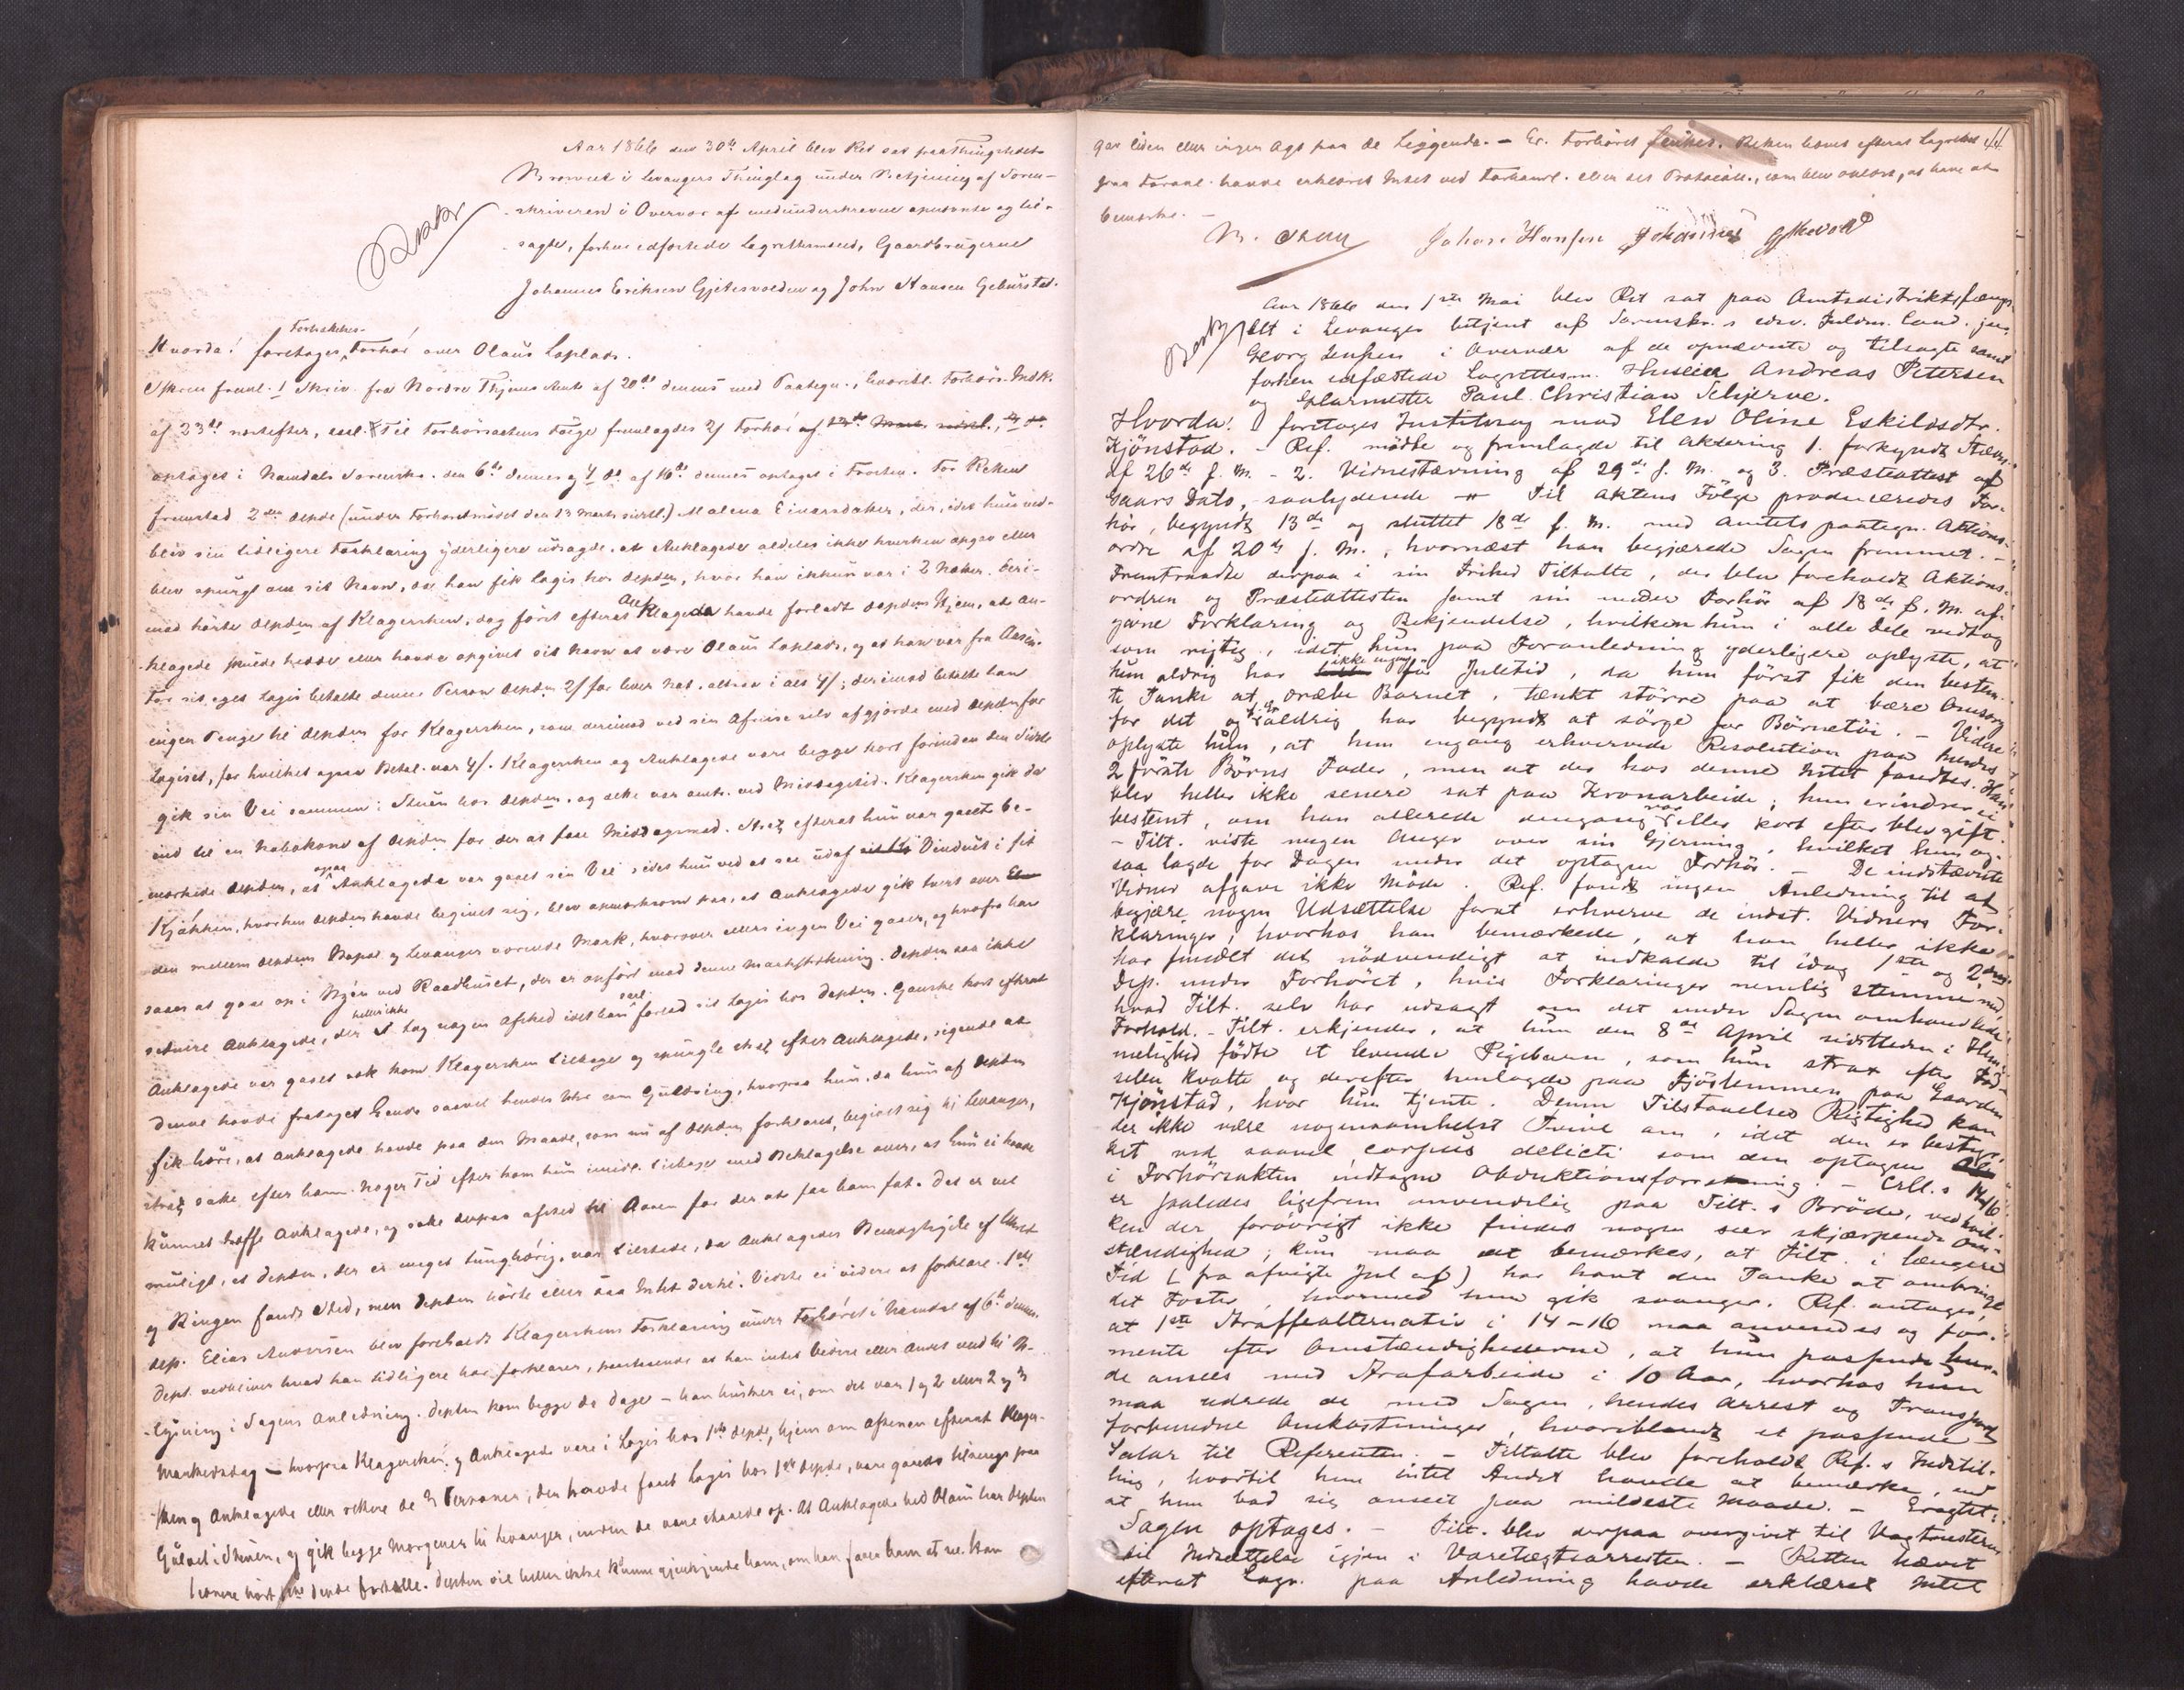 Aar 1866 den 30te April blev Ret sat paa Thingstedet
Bromve i Levangers Thinglag under Betjening af Soren-
skriveren i Overvær af medunderskrevne opnævnte og til-
sagte, forhen edfæstede Lagrettemænd, Gaardbrugerne
Johannes Eriksen Gjetesvolden og John Hansen Geburstad.
Fortsættelses-
Hvorda! foretoges Forhør over Olaus Loplads.
Skrm freml. 1 Skriv. fra Nordre Thjems Amt af 20de dennes med Paategn., hvoribl. Forhørs-Indk.
af 23de næstefter, Til Forhørsactens Følge fremlagdes 2 Forhør af
optaget i Namdals Sorenskr. den 6te dennes og 1 do af 16de dennes optaget i Frosten. For Retten
fremstod 2den depde (under Forhørsmødet den 13 Marts sidstl.) Malena Einarsdatter, der, idet hun ved-
blev sin tidligere Forklaring yderligere udsagde, at Anklagede aldeles ikke hverken opgav eller
blev spurgt om sit Navn, da han fik Logis hos depden, hvor han ikkun var i 2 Nætter. Deri-
mod hørte depden af Klagersken, dog først efterat Anklagede havde forladt depdens Hjem, at An-
klagede skulde hedde eller havde opgivet sit Navn at være Olaus Loplads, og at han var fra Aasen.
For sit eget Logis betalte denne Person depden 2/ for hver Nat, altsaa i alt 4/; derimod betalte han
ingen Penge til depden for Klagersken, som derimod ved sin Afreise selv afgjorde med depden for
Logiset, for hvilket ogsaa Betal. var 4/. Klagersken og Anklagede vare begge kort forinden den Sidste
gik sin Vei sammen i Stuen hos depden, og dette var omtr. ved Middagstid. Klagersken gik da
ind til en Nabokone af depden for der at faae Middagsmad. Strax efterat hun var gaaet be-
mærkede depden, at ogsaa Anklagede var gaaet sin Vei idet hun ved at see ud af Vinduet i sit
Kjøkken, hvorhen depden havde begivet sig, blev opmærksom paa, at Anklagede gik tvert over
den mellem depdens Bopæl og Levanger værende Mark, hvorover ellers ingen Vei gaaer, og hvorfra han
saaes at gaae op i Byen ved Raadhuset, der er opført mod denne Markstrækning. Depden saa ikke
senere Anklagede, der heller ikke tog nogen Afsked idet han forlod sit Logis hos depden. Ganske kort efterat
Anklagede var gaaet ud kom Klagersken tilbage og spurgte strax efter Anklagede, sigende at
denne havde frataget hende saavel hendes Uhr som Guldring, hvorpaa hun, da hun af depden
fik høre, at Anklagede havde paa den Maade, som nu af depden forklaret, begivet sig til Levanger,
strax satte efter ham. Nogen Tid efter kom hun imidl. tilbage med Beklagelse over, at hun ei havde
kunnet træffe Anklagede, og satte derpaa afsted til Aasen for der at faae ham fat. Det er vel
muligt, at depden, der er meget tunghørig, var tilstede, da Anklagedes Bemægtigelse af Uhret
og Ringen fandt Sted, men depden hørte eller saa Intet dertil. Vidste ei videre at forklare. 1ste
dep. Elias Andersen blev foreholdt Klagerskens Forklaring under Forhøret i Namdal af 6te dennes.
Dept. vedbliver hvad han tidligere har forklaret, paastaaende at han intet videre eller andet ved til Op-
lysning i Sagens Anledning. Depden kom begge de Dage – han husker ei, om det var 1 og 2 eller 2 og 3
Markedsdag – hvorpaa Klagersken og Anklagede vare i Logis hos 1ste depde, hjem om Aftenen efterat Klager-
sken og Anklagede eller rettere de 2 Personer, der havde faaet Logis hos 1ste depde, vare gaaede tilsengs paa
Gulvet i Stuen, og gik begge Morgener til Levanger, inden de vare staaede op. At Anklagede hed Olaus har depden
senere hørt depde fortælle. Depden vil heller ikke kunne gjenkjende ham, om han faaer ham at see. Han
gav liden eller ingen Agt paa de Liggende. – Er. Forhøret sluttet. Retten hævet efterat Lagrettet 44
paa Foranl. havde erklæret Intet ved Forhandl. eller det Protocoll., som blev oplæst, at have at
bemærke. –
Johan Hansen Johannes Gjetesvold
Aar 1866 den 1ste Mai blev Ret sat paa Amtsdistriktsfængs-
let i Levanger betjent af Sorenskr.s edsv. Fuldm. Cand. jur.
Georg Jensen i Overvær af de opnævnte og tilsagte samt
forhen edfæstede Lagrettesm. Huseier Andreas Petersen
og Glarmester Paul Christian Schjerve.
Hvorda! foretoges Justitssag mod Elen Oline Eskildsdtr.
Kjönstad. – Ref. mødte og fremlagde til aktering 1. forkyndt Stævn.
af 26de f. M. – 2. Vidnestævning af 29de f. M. og 3. Præsteattest af
Gaars Dato, saalydende – Til Aktens Følge produceredes For-
hör, begyndt 13de og sluttet 18de f. M. med Amtets paategn. Aktions-
ordre af 20de f. M., hvornæst han begjærede Sagen fremmet. –
Fremtraadte derpaa i sin Frihed Tiltalte, der blev foreholdt Aktions-
ordren og Præsteattesten samt sin under Forhör af 18de f. M. af-
givne Forklaring og Bekjendelse, hvilken hun i alle Dele vedtog
som rigtig, idet hun paa Foranledning yderligere oplyste, at
hun aldrig har ikke engang før Juletid, da hun först fik den bestem-
te Tanke at dræbe Barnet, tænkt större paa at bære Omsorg
for det og aldrig har begyndt at sörge for Börnetöi. – Videre
oplyste hun, at hun engang erhvervede Resolution paa hendes
2 förste Börns Fader, men at der hos denne Intet fandtes. Han
blev heller ikke senere sat paa Kronarbeide; hun erindrer ei
bestemt, om han allerede dengang var eller kort efter blev gift.
– Tilt. viste megen Anger over sin Gjerning, hvilket hun og-
saa lagde for Dagen under det optagne Forhör. – De indstævnte
Vidner afgave ikke Möde. Ref. fandt ingen Anledning til at
begjære nogen Udsættelse forat erhverve de indst. Vidners For-
klaringer, hvorhos han bemærkede, at han heller ikke
har fundet det nödvendigt at indkalde til idag 1ste og 2den
Dep. under Forhöret, hvis Forklaringer nemlig stemme med
hvad Tilt. selv har udsagt om det under Sagen omhandlede
Forhold. – Tilt. erkjender, at hun den 8de April sidstleden i Hem-
melighed fødte et levende Pigebarn, som hun strax efter Föd-
selen kvalte og derefter henlagde paa Fjöslemmen paa Gaarden
Kjönstad, hvor hun tjente. Denne Tilstaaelses Rigtighed kan
der ikke være nogensomhelst Tvivl om, idet den er bestyr-
ket ved saavel corpus delicti som den optagne
i Forhörsakten indtagne Obduktionsforretning. – Crll.s 14-16
er saaledes ligefrem anvendelig paa Tilt.s Bröde, ved hvil-
ken der forövrigt ikke findes nogen sær skjærpende Om-
stændighed; kun maa det bemærkes, at Tilt. i længere
Tid (fra afvigte Jul af) har havt den Tanke at ombringe
det Foster, hvormed hun gik svanger. Ref. antager,
at 1ste Straffealternativ i 14-16 maa anvendes og for-
mente efter Omstændighederne, at hun passende bur-
de ansees med Strafarbeide i 10 Aar, hvorhos hun
maa udrede de med Sagen, hendes Arrest og Transport
forbundne Omkostninger, hvoriblandt et passende
Salær til Referenten. – Tiltalte blev foreholdt Ref.s Indstil-
ling, hvortil hun intet Andet havde at bemærke, end
at hun bad sig anseet paa mildeste Maade. – Eragtet:
Sagen optages. – Tilt. blev derpaa overgivet til Vagtmesteren
til Indsættelse igjen i Varetægtsarresten. – Retten hævet
efterat Lagr. paa Anledning havde erklæret Intet